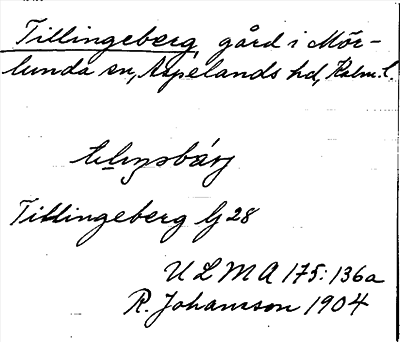 Tillingeberg, gård i Mör-
lunda sn, Aspelands hd, Kalm. l.
Tillingeberg G 28
U L M A 175:136a
R. Johansson 1904